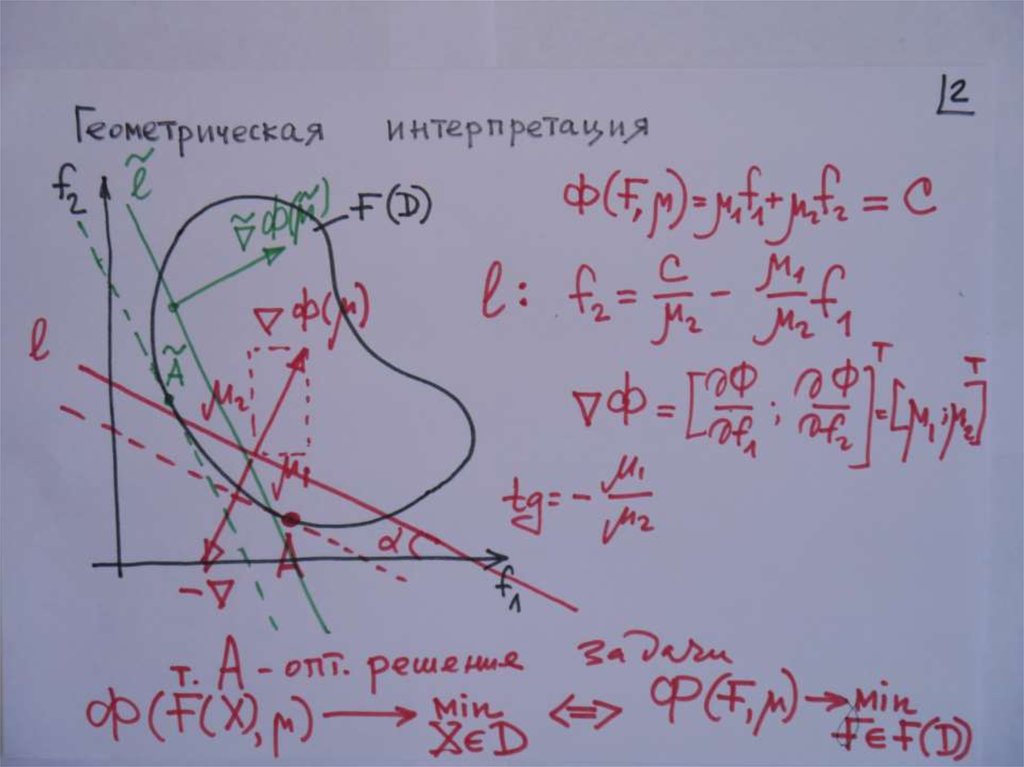 2
Геометрическая интерпретация
f₂
l̃
∇̃Φ(μ̃)
F(D)
Φ(F, μ) = μ₁f₁ + μ₂f₂ = C
l: f₂ = C/μ₂ - μ₁/μ₂ f₁
∇Φ(μ)
l
Ã
μ₂
∇Φ = [∂Φ/∂f₁ ; ∂Φ/∂f₂]ᵀ = [μ₁; μ₂]ᵀ
μ₁
tg = - μ₁/μ₂
α
A
f₁
-∇
т. A - опт. решение задачи
Φ(F(X), μ) → min X∈D ⇔ Φ(F, μ) → min F∈F(D)